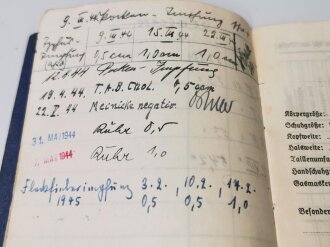 9. III. 44 Pocken - Impfung
Typhus- 9. III. 44 15. III. 44 22. III.
Impfung 0,5ccm 1,0ccm 1,0
12.4.44 Pocken-Impfung
19.4.44. T.A.B. Chol. 0,5 ccm
22. V. 44 Meinicke negativ.
31. MAI 1944 Ruhr 0,5
7. MAI 1944 Ruhr 1,0
Fleckfieberimpfung 3.2. , 10.2. , 17.2.
1945 0,5 0,5 1,0
Körpergröße
Schuhgröße:
Kopfweite:
Halsweite:
Taillenumfa
Handschuhg
Gasmaske
Besonder